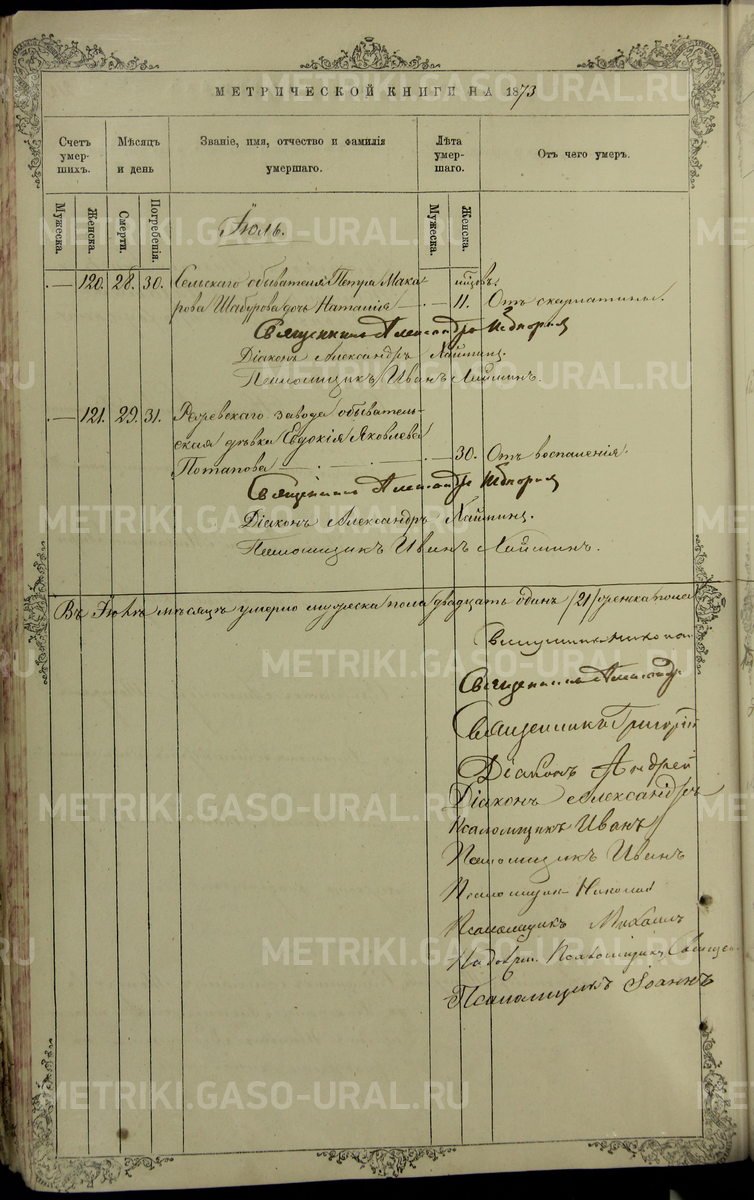 МЕТРИЧЕСКОЙ КНИГИ НА 1873
Счетъ умер- шихъ.
Мѣсяцъ и день
Званіе, имя, отчество и фамилія умершаго.
Лѣта умер- шаго.
Отъ чего умеръ.
Мужеска.
Женска.
Смерти.
Погребенія.
Мужеска.
Женска.
Іюль.
— 120. 28. 30. Сельскаго обывателя Петра Мака-
рова Шабурова дочь Наталія — 11. Отъ скарлатины.
Священникъ Александръ
Діаконъ Александръ
Псаломщикъ Иванъ
— 121. 29. 31. Режевскаго завода обыватель-
ская дѣвка Евдокія Яковлева
Потапова — 30. Отъ воспаленія.
Священникъ Александръ
Діаконъ Александръ
Псаломщикъ Иванъ
Въ Іюлѣ мѣсяцѣ умерло мужеска пола двадцать одинъ /21/ женска пола
Священникъ
Священникъ Александръ
Священникъ Григорій
Діаконъ Андрей
Діаконъ Александръ
Псаломщикъ Иванъ
Псаломщикъ Иванъ
Псаломщикъ Николай
Псаломщикъ Михаилъ
Псаломщикъ
Псаломщикъ Іоаннъ
METRIKI.GASO-URAL.RU